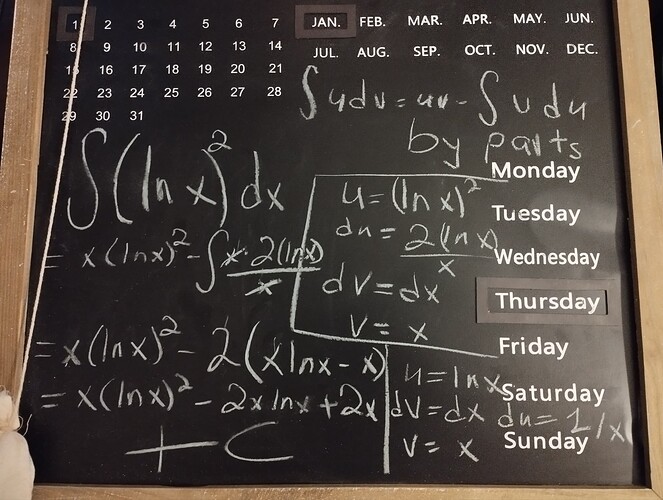 1 2 3 4 5 6 7 JAN. FEB. MAR. APR. MAY. JUN.
8 9 10 11 12 13 14 JUL. AUG. SEP. OCT. NOV. DEC.
15 16 17 18 19 20 21
22 23 24 25 26 27 28
29 30 31
∫udv = uv - ∫vdu
by parts
∫(ln x)² dx
= x(lnx)² - ∫x · 2(lnx)/x
= x(lnx)² - 2(xlnx - x)
= x(lnx)² - 2xlnx + 2x
+ C
u = (ln x)²
du = 2(lnx)/x
dv = dx
v = x
u = lnx
dv = dx du = 1/x
v = x
Monday
Tuesday
Wednesday
Thursday
Friday
Saturday
Sunday